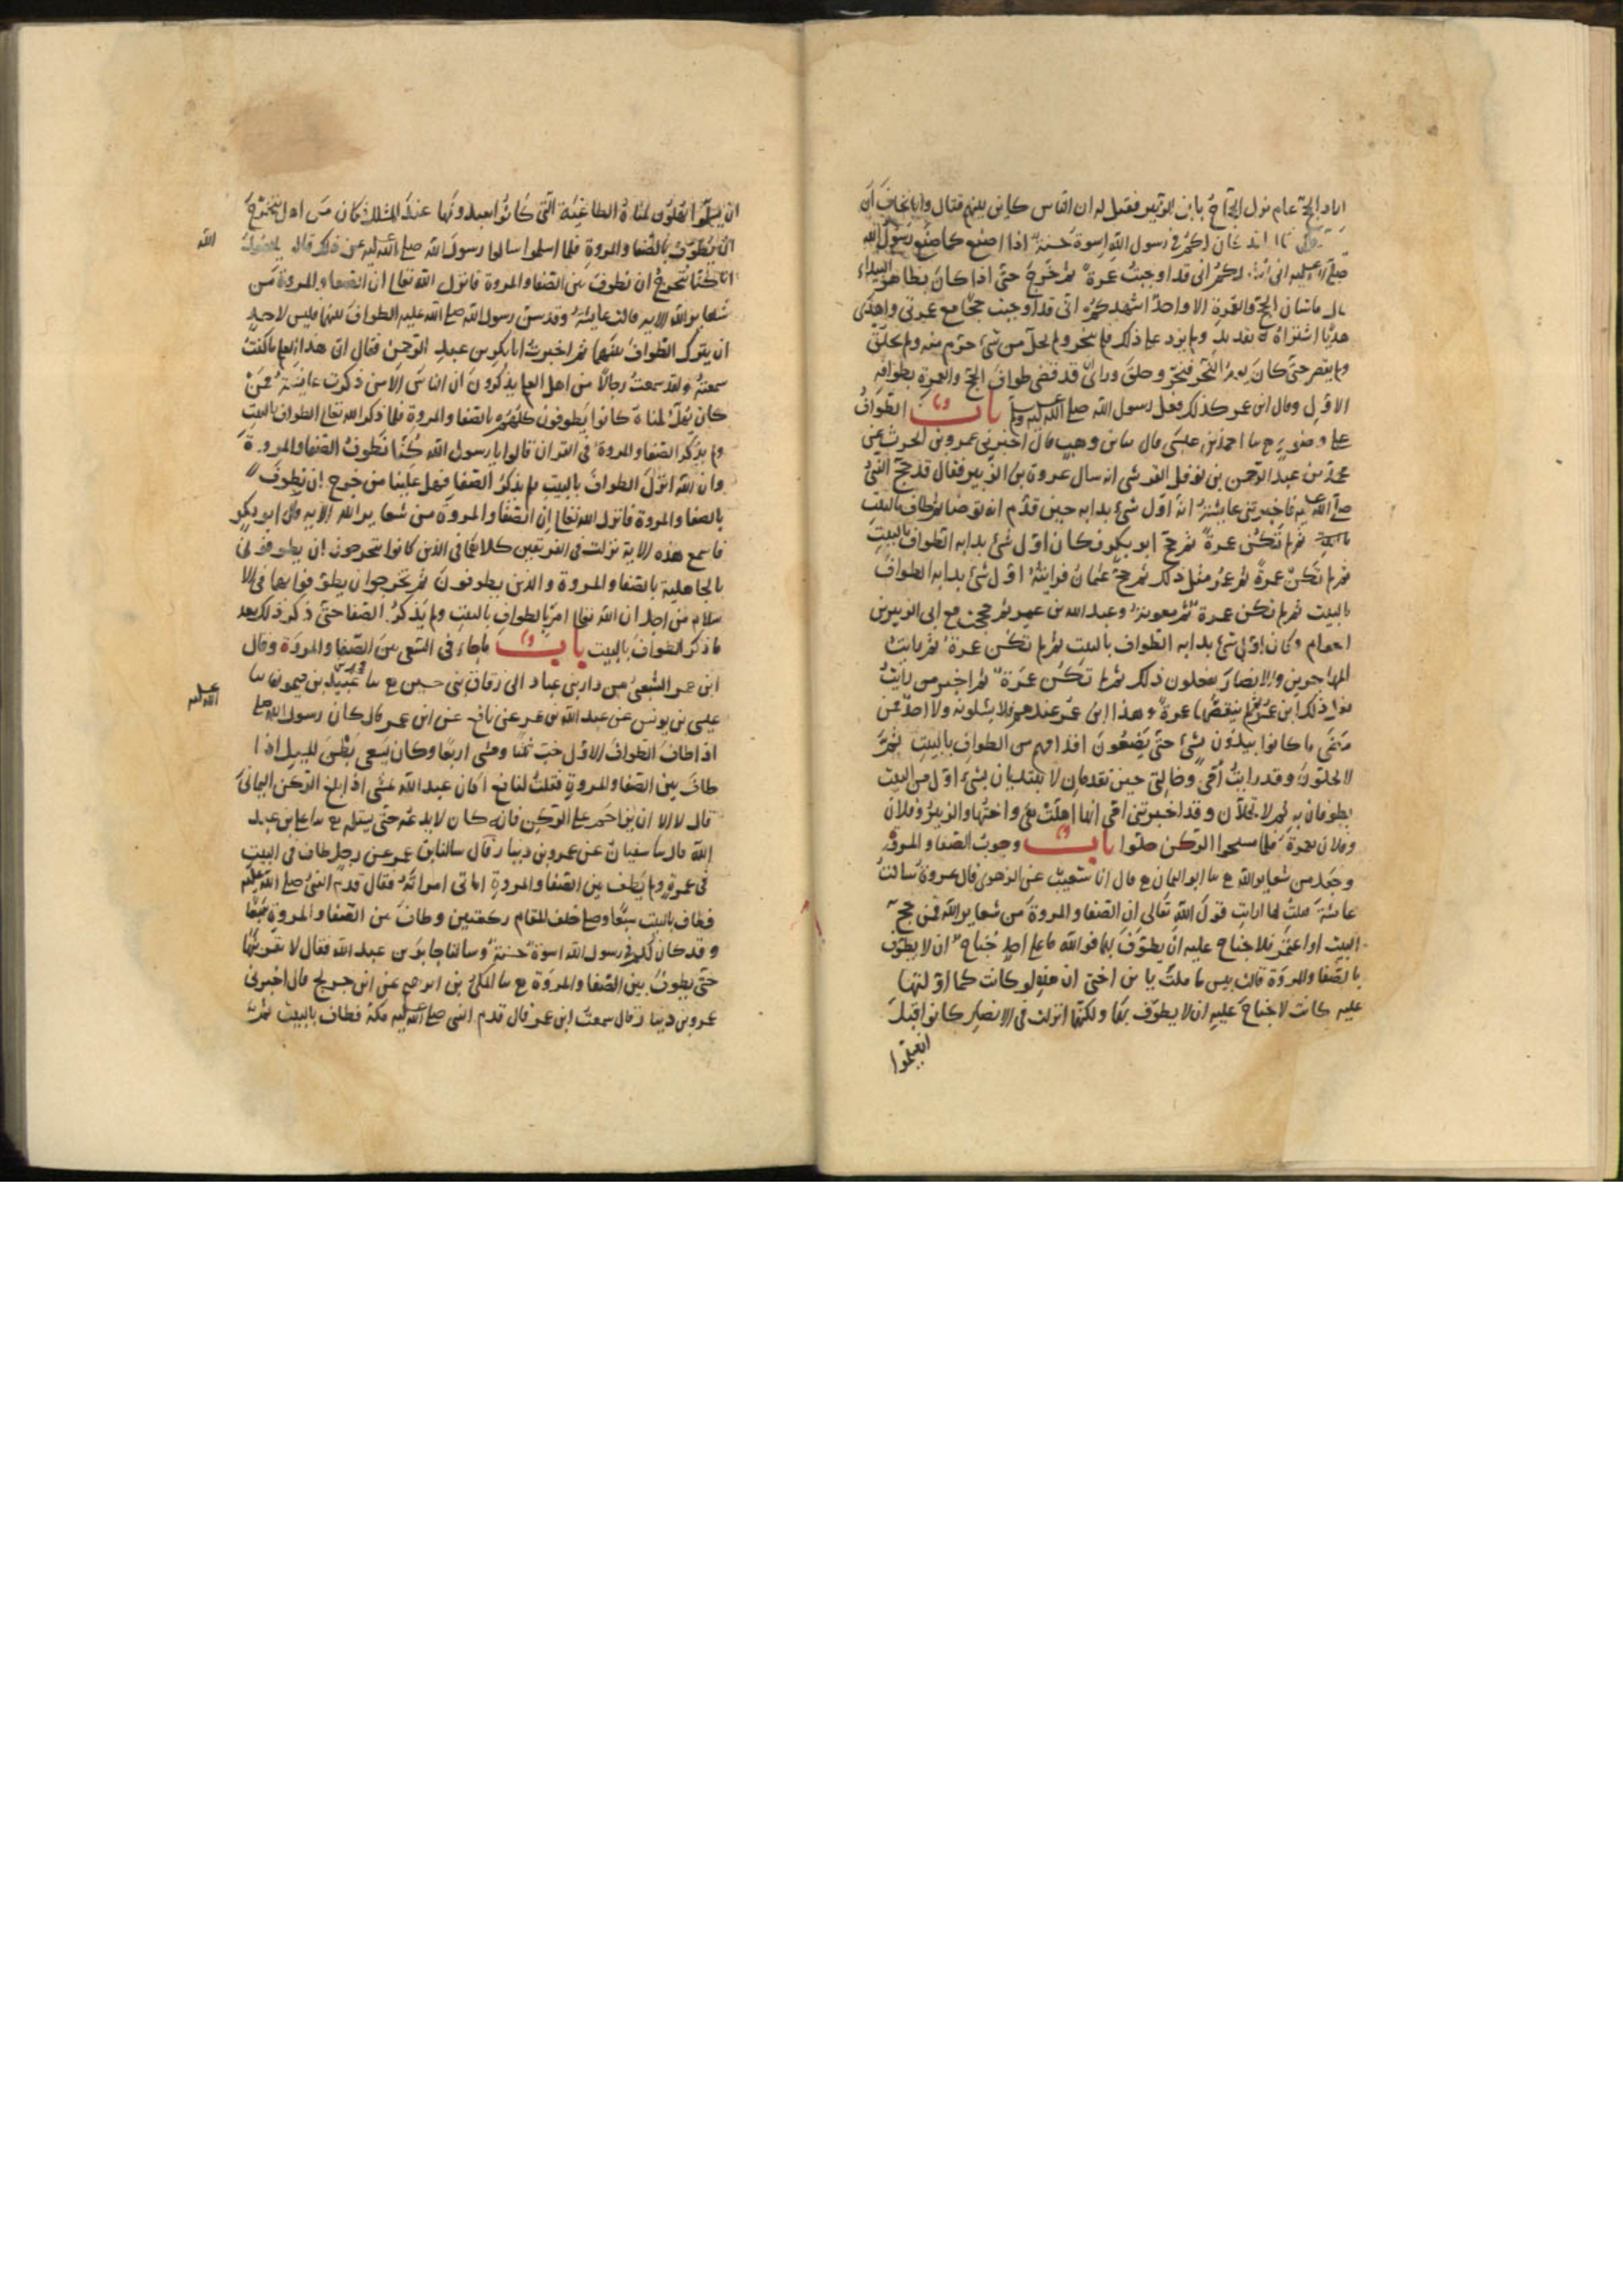 اراد الحج عام نزل الحجاج بابن الزبير فقيل له ان الناس كاين بينهم قتال وانا نخاف ان
لكم في رسول الله اسوة حسنة اذا اصنع كما صنع رسول الله
صلى الله عليه اني اشهدكم اني قد اوجبت عمرة ثم خرج حتى اذا كان بظاهر البيداء
قال ما شان الحج والعمرة الا واحد اشهدكم اني قد اوجبت حجا مع عمرتي واهدى
هديا اشتراه بقديد ولم يزد على ذلك فلم ينحر ولم يحل من شئ حرم منه ولم يحلق
ولم يقصر حتى كان يوم النحر فنحر وحلق وراى ان قد قضى طواف الحج والعمرة بطوافه
الاول وقال ابن عمر كذلك فعل رسول الله صلى الله عليه وسلم باب الطواف
على وضوء ح سا احمد بن عيسى قال سا بن وهب قال اخبرني عمرو بن الحرث عن
محمد بن عبد الرحمن بن نوفل القرشي انه سال عروة بن الزبير فقال قد حج النبي
صلى الله عليه فاخبرتني عايشة انه اول شئ بدا به حين قدم انه توضا ثم طاف بالبيت
ثم لم تكن عمرة ثم حج ابو بكر فكان اول شئ بدا به الطواف بالبيت
ثم لم تكن عمرة ثم عمر مثل ذلك ثم حج عثمان فرايته اول شئ بدا به الطواف
بالبيت ثم لم تكن عمرة ثم معوية وعبد الله بن عمر ثم حججت مع ابي الزبير بن
العوام وكان اول شئ بدا به الطواف بالبيت ثم لم تكن عمرة ثم رايت
المهاجرين والانصار يفعلون ذلك ثم لم تكن عمرة ثم اخر من رايت
فعل ذلك ابن عمر ثم لم ينقضها عمرة وهذا ابن عمر عندهم فلا يسلونه ولا احد ممن
مضى ما كانوا يبدون بشئ حتى يضعون اقدامهم من الطواف بالبيت ثم
لا يحلون وقد رايت امي وخالتي حين تقدمان لا تبتديان بشئ اول من البيت
يطوفان به ثم لا تحلان وقد اخبرتني امي انها اهلت هي واختها والزبير وفلان
وفلان بعمرة فلما مسحوا الركن حلوا باب وجوب الصفا والمروة
وجعل من شعاير الله ح سا ابو اليمان ح قال انا شعيب عن الزهري قال عروة سالت
عايشة فقلت لها ارايت قول الله تعالى ان الصفا والمروة من شعاير الله فمن حج
البيت او اعتمر فلا جناح عليه ان يطوف بهما فوالله ما على احد جناح ان لا يطوف
بالصفا والمروة قالت بيس ما قلت يا بن اختي ان هذه لو كانت كما اولتها
عليه كانت لا جناح عليه ان لا يطوف بهما ولكنها انزلت في الانصار كانوا قبل
ان يسلموا
ان يسلموا يهلون لمناة الطاغية التي كانوا يعبدونها عند المشلل فكان من اهل يتحرج
ان يطوف بالصفا والمروة فلما اسلموا سالوا رسول الله صلى الله عليه عن ذلك قالوا يا رسول
الله
انا كنا نتحرج ان نطوف بين الصفا والمروة فانزل الله تعالى ان الصفا والمروة من
شعاير الله الايه قالت عايشة وقد سن رسول الله صلى الله عليه الطواف بينهما فليس لاحد
ان يترك الطواف بينهما ثم اخبرت ابا بكر بن عبد الرحمن فقال ان هذا العلم ما كنت
سمعته ولقد سمعت رجالا من اهل العلم يذكرون ان الناس الا من ذكرت عايشة ممن
كان يهل لمناة كانوا يطوفون كلهم بالصفا والمروة فلما ذكر الله تعالى الطواف بالبيت
ولم يذكر الصفا والمروة في القران قالوا يا رسول الله كنا نطوف الصفا والمروة
وان الله انزل الطواف بالبيت فلم يذكر الصفا فهل علينا من حرج ان نطوف
بالصفا والمروة فانزل الله تعالى ان الصفا والمروة من شعاير الله الايه قال ابو بكر
فاسمع هذه الاية نزلت في الفريقين كلاهما في الذين كانوا يتحرجون ان يطوفوا في
بالجاهلية بالصفا والمروة والذين يطوفون ثم تحرجوا ان يطوفوا بهما في الا
سلام من اجل ان الله تعالى امر بالطواف بالبيت ولم يذكر الصفا حتى ذكر ذلك بعد
ما ذكر الطواف بالبيت باب ما جاء في السعي بين الصفا والمروة وقال
ابن عمر السعي من دار بني عباد الى زقاق بني حسين ح سا محمد بن عبيد بن ميمون سا
عيسى بن يونس عن عبد الله بن عمر عن نافع عن ابن عمر قال كان رسول الله صلى
الله عليه
اذا طاف الطواف الاول خب ثلثا ومشى اربعا وكان يسعى بطن المسيل اذا
طاف بين الصفا والمروة فقلت لنافع اكان عبد الله يمشي اذا بلغ الركن اليماني
قال لا الا ان يزاحم على الركن فانه كان لا يدعه حتى يستلمه ح سا علي بن عبد
الله قال سا سفيان عن عمرو بن دينار قال سالنا بن عمر عن رجل طاف في البيت
في عمرة ولم يطف بين الصفا والمروة اياتي امراته فقال قدم النبي صلى الله عليه
فطاف بالبيت سبعا وصلى خلف المقام ركعتين وطاف بين الصفا والمروة سبعا
وقد كان لكم في رسول الله اسوة حسنة وسالنا جابر بن عبد الله فقال لا يقربنها
حتى يطوف بين الصفا والمروة ح سا المكي بن ابرهيم عن ابن جريج قال اخبرني
عمرو بن دينار قال سمعت ابن عمر قال قدم النبي صلى الله عليه مكة فطاف بالبيت ثم